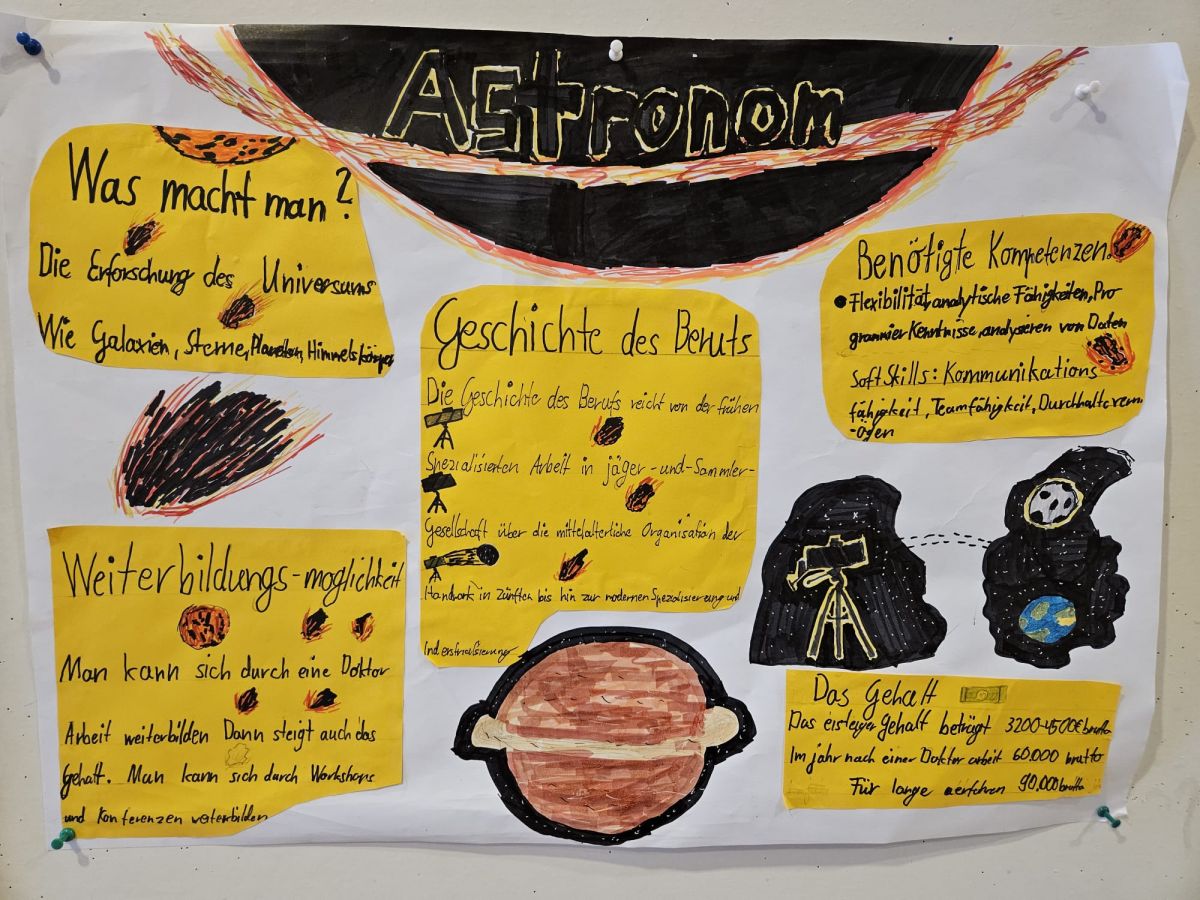 Astronom
Was macht man?
Die Erforschung des Universums
Wie Galaxien, Sterne, Planeten, Himmelskörper
Geschichte des Berufs
Die Geschichte des Berufs reicht von der frühen
Spezialisierten Arbeit in jäger-und-Sammler-
Gesellschaft über die mittelalterliche Organisation der
Handwerk in Zünften bis hin zur modernen Spezialisierung und
Benötigte Kompetenzen:
Flexibilität, analytische Fähigkeiten, Pro
grammier Kenntnisse, analysieren von Daten
Soft Skills: Kommunikations
fähigkeit, Teamfähigkeit, Durchhalteverm
-ögen
Weiterbildungs-moglichkeit
Man kann sich durch eine Doktor
Arbeit weiterbilden Dann steigt auch das
Gehalt. Man kann sich durch Workshops
und Konferenzen weiterbilden
Das Gehalt
Das eisteiger gehalt beträgt 3200-4500€ brutto
Im jahr nach einer Doktor arbeit 60.000 brutto
Für lange 90.000 brutto